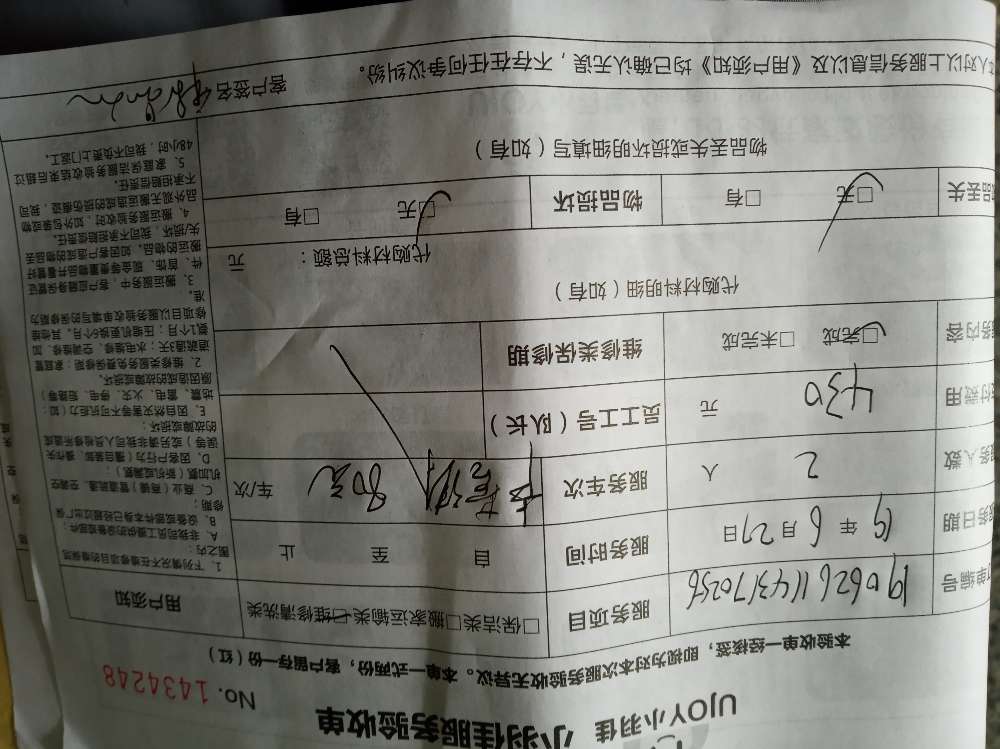 UJOY小羽佳 小羽佳服务验收单
No. 1434248
本验收单一经接签，即视为对本次服务验收无异议。本单一式两份，客户留存一份（红）
单编号 190626114317025 服务项目 □保洁类□搬家运输类□维修清洗类 用户须知
务日期 19年6月27日 服务时间 自 至 止
务人数 2 人 服务车次 80元 车/次
付费用 430 元 员工工号（队长）
务内容 □完成 □未完成 维修类保修期
代购材料明细（如有）
代购材料总额： 元
品丢失 □无 □有 物品损坏 □无 □有
物品丢失或损坏明细填写（如有）
认对以上服务信息以及《用户须知》均已确认无误，不存在任何争议纠纷。
客户签名
1. 下列情况不在维修项目的维保范
围之内：
A. 非我司员工提供的设备或部件；
B. 设备或部件本身已经超过出厂保
修期；
E. 因自然灾害等不可抗力（如：
地震、雷电、火灾、停电、短路等）
原因造成的故障或损坏。
2. 维修类服务免费保修期：家庭管
道疏通3天；水电维修、空调维修、加
氨1个月；压缩机更换6个月。其他维
修项目以服务验收单填写的保修期为
准。
3. 搬运服务中，客户应随身保管证
件、首饰、现金等贵重物品并看管好
搬运的物品，如因客户造成的物品丢
失损坏，我司不承担赔偿责任。
4. 搬运服务验收时，如外包装物或
品外观无搬运造成的损伤痕迹，我司
不承担赔偿责任。
5. 家庭保洁服务验收结束后超过
48小时，我司不负责上门返工。